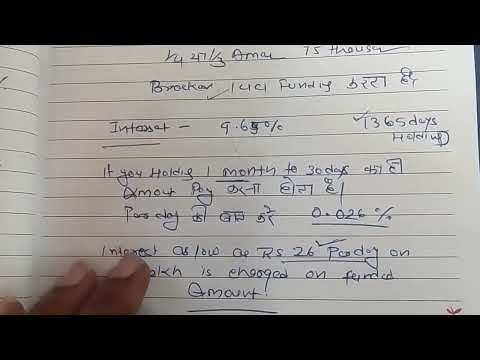 1/4 या 1/3 Amou 75 thousa
Broekar ✓ PAA Funding करता है,
Interest - 9.65% ✓ 365 days
Holding)
If you Holding 1 month to 30 days का ही
Amout Pay करना होता है|
Par day की बात करे 0.026%
Interest as low as Rs 26 Par day on
is charged on funded
Amount!